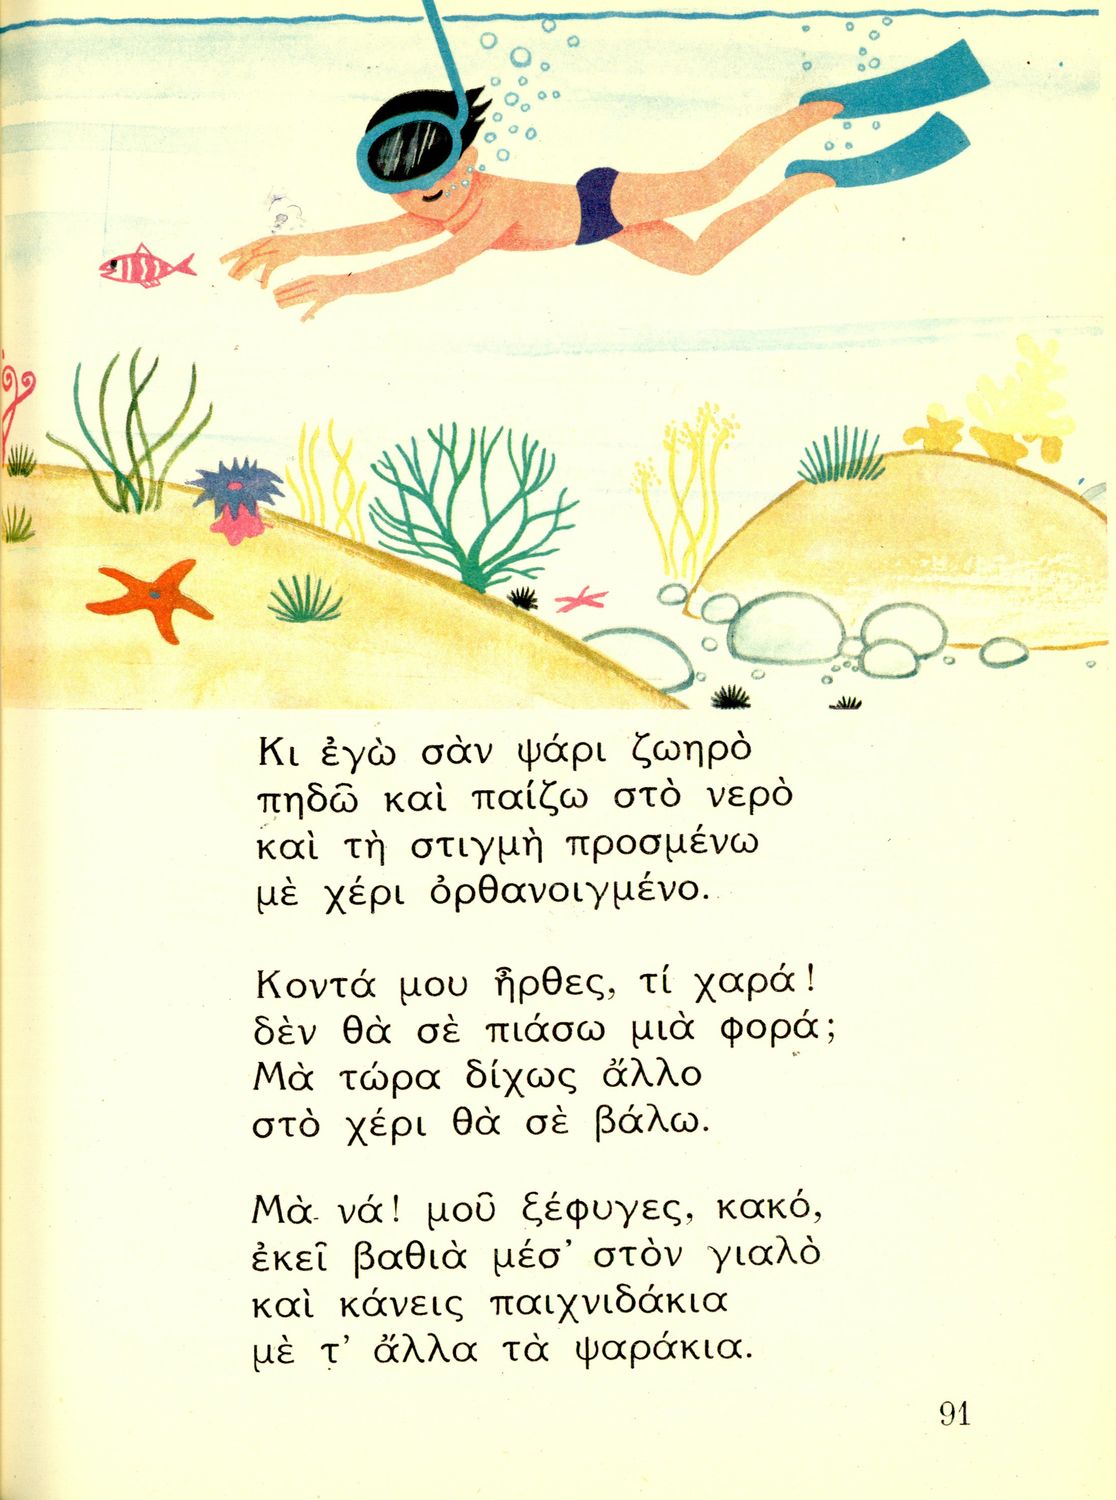 Κι ἐγὼ σὰν ψάρι ζωηρὸ
πηδῶ καὶ παίζω στὸ νερὸ
καὶ τὴ στιγμὴ προσμένω
μὲ χέρι ὀρθανοιγμένο.
Κοντά μου ἦρθες, τί χαρά!
δὲν θὰ σὲ πιάσω μιὰ φορά;
Μὰ τώρα δίχως ἄλλο
στὸ χέρι θὰ σὲ βάλω.
Μὰ νά! μοῦ ξέφυγες, κακό,
ἐκεῖ βαθιὰ μέσ' στὸν γιαλὸ
καὶ κάνεις παιχνιδάκια
μὲ τ' ἄλλα τὰ ψαράκια.
91